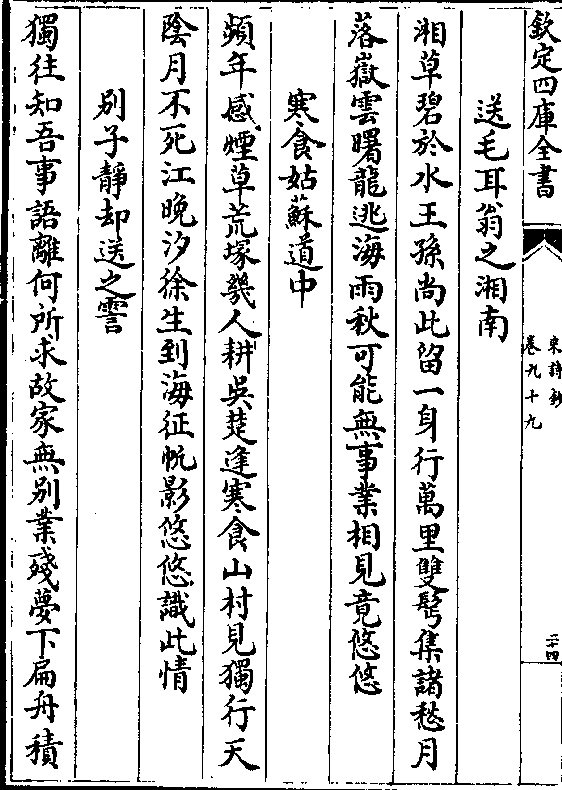 欽定四庫全書
宋詩鈔
卷九十九
二十四
送毛耳翁之湘南
湘草碧於水王孫尚此留一身行萬里雙鬂集諸愁月
落嶽雲曙龍逃海雨秋可能無事業相見竟悠悠
寒食姑蘇道中
頻年感煙草荒塚幾人耕吳楚逢寒食山村見獨行天
陰月不死江晚汐徐生到海征帆影悠悠識此情
別子靜却送之霅
獨往知吾事語離何所求故家無別業殘夢下扁舟積